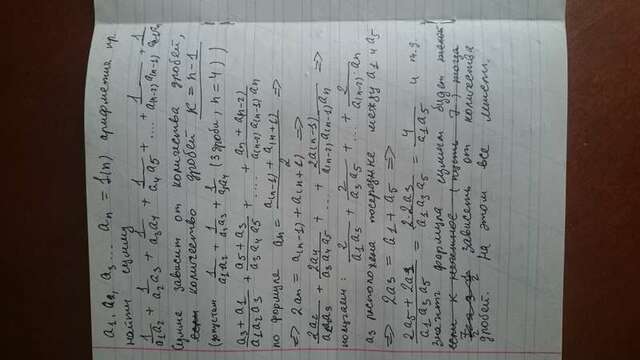 a₁, a₂, a₃ ... aₙ = f(n) арифметич. пр.
найти сумму
1/(a₁a₂) + 1/(a₂a₃) + 1/(a₃a₄) + 1/(a₄a₅) + ... + 1/(a(n-2)a(n-1)) + 1/(a(n-1)aₙ)
Сумма зависит от количества дробей,
количество дробей K = n-1
(допустим 1/(a₁a₂) + 1/(a₂a₃) + 1/(a₃a₄) (3 дроби, n=4))
(a₃+a₁)/(a₁a₂a₃) + (a₅+a₃)/(a₃a₄a₅) + .... + (aₙ+a(n-2))/(a(n-2)a(n-1)aₙ)
по формуле aₙ = (a(n-1) + a(n+1))/2 =>
=> 2aₙ = a(n-1) + a(n+1) =>
2a₂/(a₁a₂a₃) + 2a₄/(a₃a₄a₅) + ... + 2a(n-1)/(a(n-2)a(n-1)aₙ) =>
получаем: 2/(a₁a₃) + 2/(a₃a₅) + ... + 2/(a(n-2)aₙ)
a₃ расположена посередине между a₁ и a₅
=> 2a₃ = a₁ + a₅ =>
(2a₅+2a₁)/(a₁a₃a₅) = (2·2a₃)/(a₁a₃a₅) = 4/(a₁a₅) и т.д.
Значит формула суммы будет
если K нечетное (пусть 7) тогда
зависеть от количества
дробей. На этом все мысли.